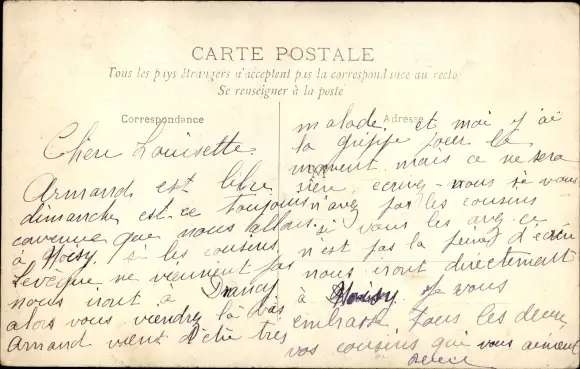 CARTE POSTALE
Tous les pays étrangers n'acceptent pas la correspondance au recto
Se renseigner à la poste
Correspondance
Adresse
Chère Louisette
Armand est libre
dimanche est ce toujours
convenue que nous allons
à Noisy. si les cousins
Lévèque ne viennent pas
nous iront à Drancy
alors vous viendrez là bas
Armand vient d'être très
malade. et moi j'ai
la grippe pour le
moment. mais ce ne sera
rien, ecrivez-nous si vous
n'avez pas les cousins
si vous les avez ce
n'est pas la peine d'écrire
nous iront directement
à Noisy. Je vous
embrasse tous les deux
vos cousins qui vous aiment